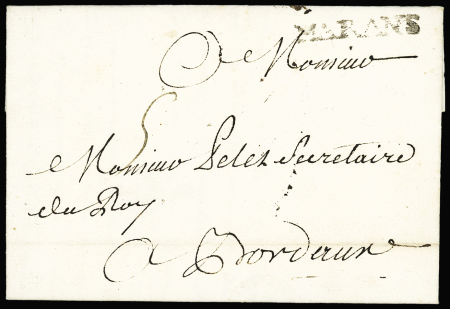 MARANS
A Monsieur
5
Monsieur Pelet Secretaire
du Roy
A Bordeaux